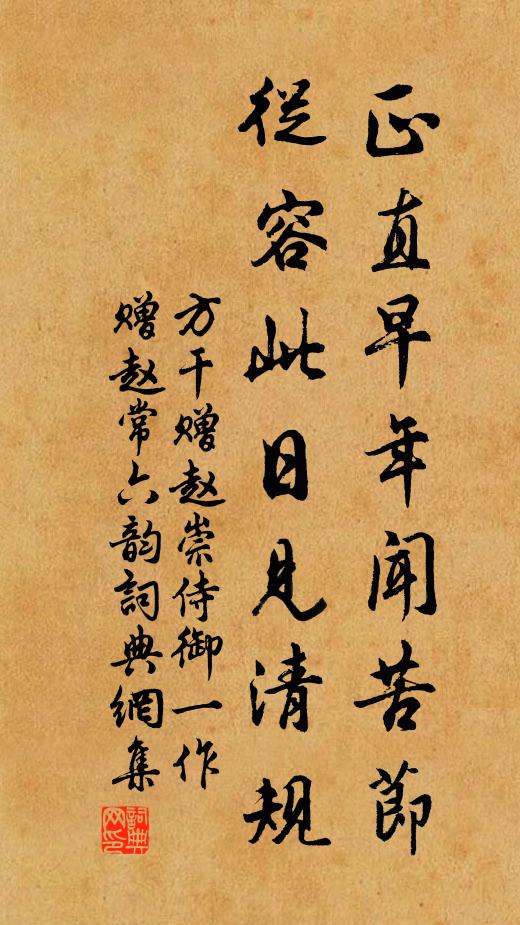 正直早年聞苦節
從容此日見清規
方干贈趙崇侍御一作
贈趙常六韵詞典網集
詞典网印